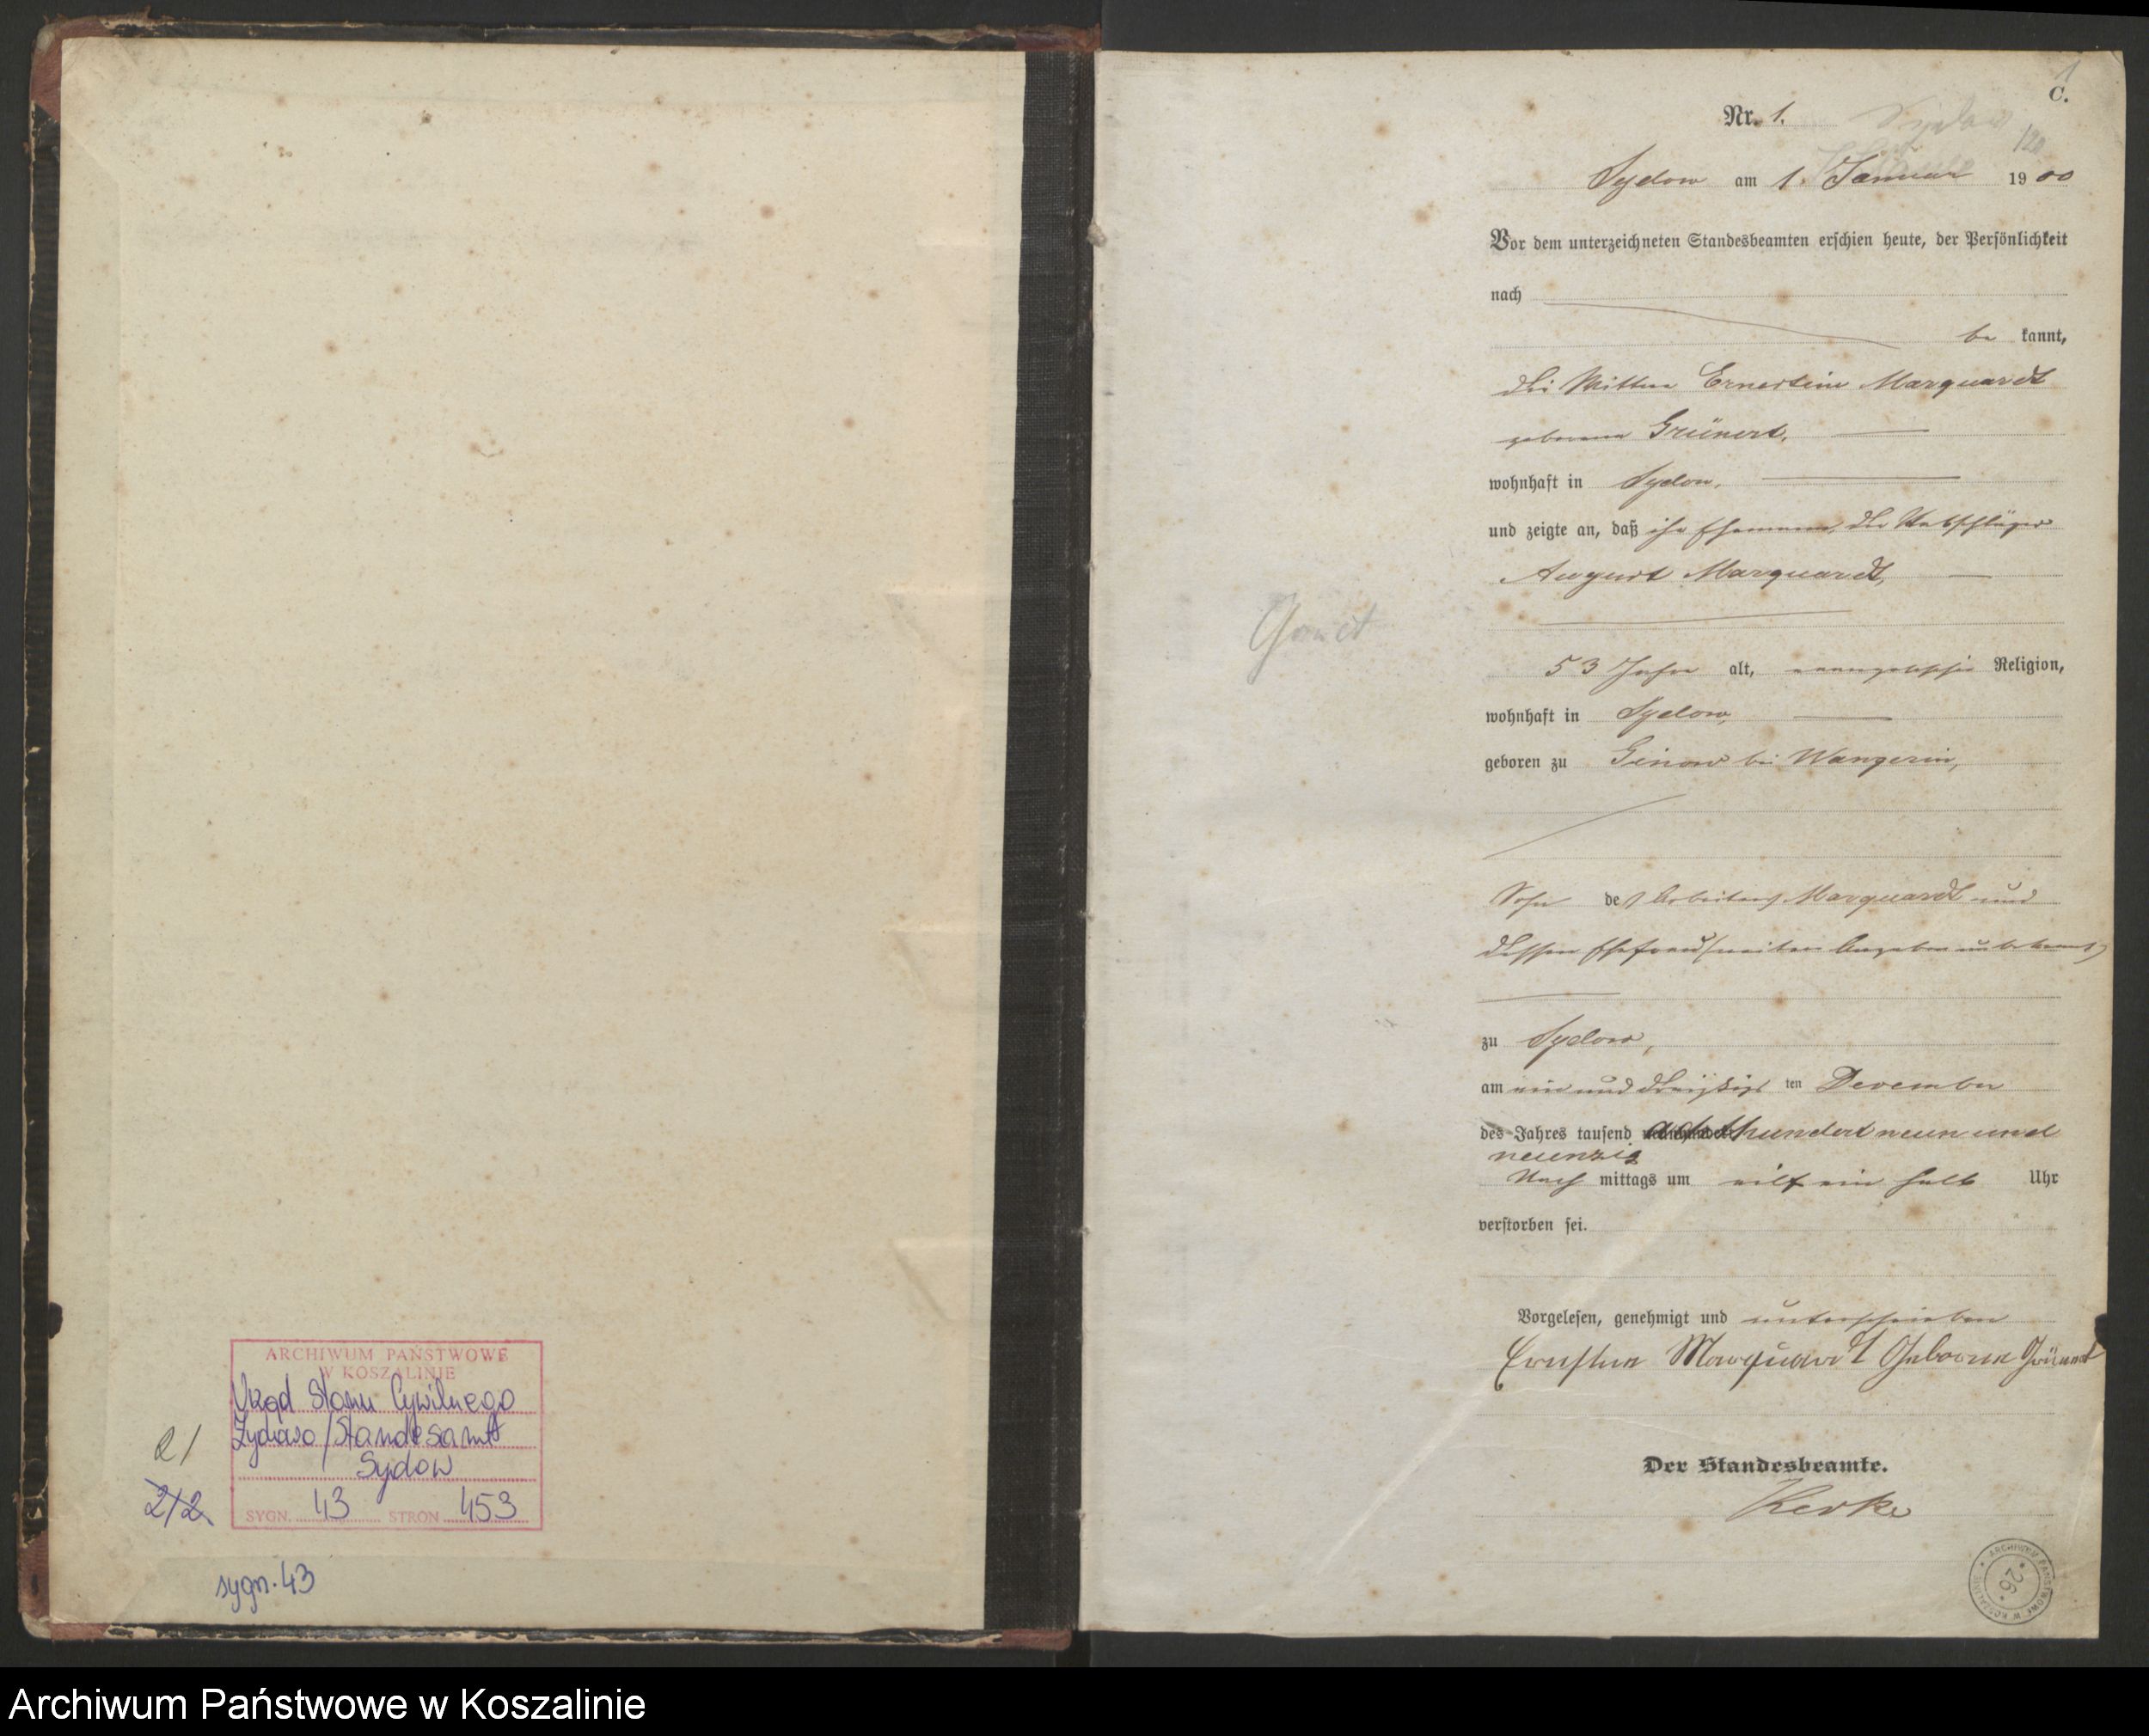 ARCHIWUM PAŃSTWOWE
W KOSZALINIE
Urząd Stanu Cywilnego
Żydowo/Standesamt
Sydow
SYGN. 43 STRON 453
21
212
sygn. 43
1
C.
Nr. 1.
Sydow
Sydow am 1. Januar 1900
Vor dem unterzeichneten Standesbeamten erschien heute, der Persönlichkeit
nach
be kannt,
die Wittwe Ernestine Marquardt
geborene Grünert,
wohnhaft in Sydow,
und zeigte an, daß ihr Ehemann, der
August Marquardt,
53 Jahre alt, evangelischer Religion,
wohnhaft in Sydow,
geboren zu Ginow bei Wangerin,
Sohn des Arbeiters Marquardt und
dessen Ehefrau (weitere Angaben unbekannt)
zu Sydow,
am ein und dreißigs ten Dezember
des Jahres tausend achthundert neun und
neunzig
Nach mittags um eilf ein halb Uhr
verstorben sei.
Vorgelesen, genehmigt und unterschrieben
Ernstine Marquardt Geborene Grünert
Der Standesbeamte.
Kerke
ARCHIWUM PAŃSTWOWE W KOSZALINIE
* 26 *
Archiwum Państwowe w Koszalinie